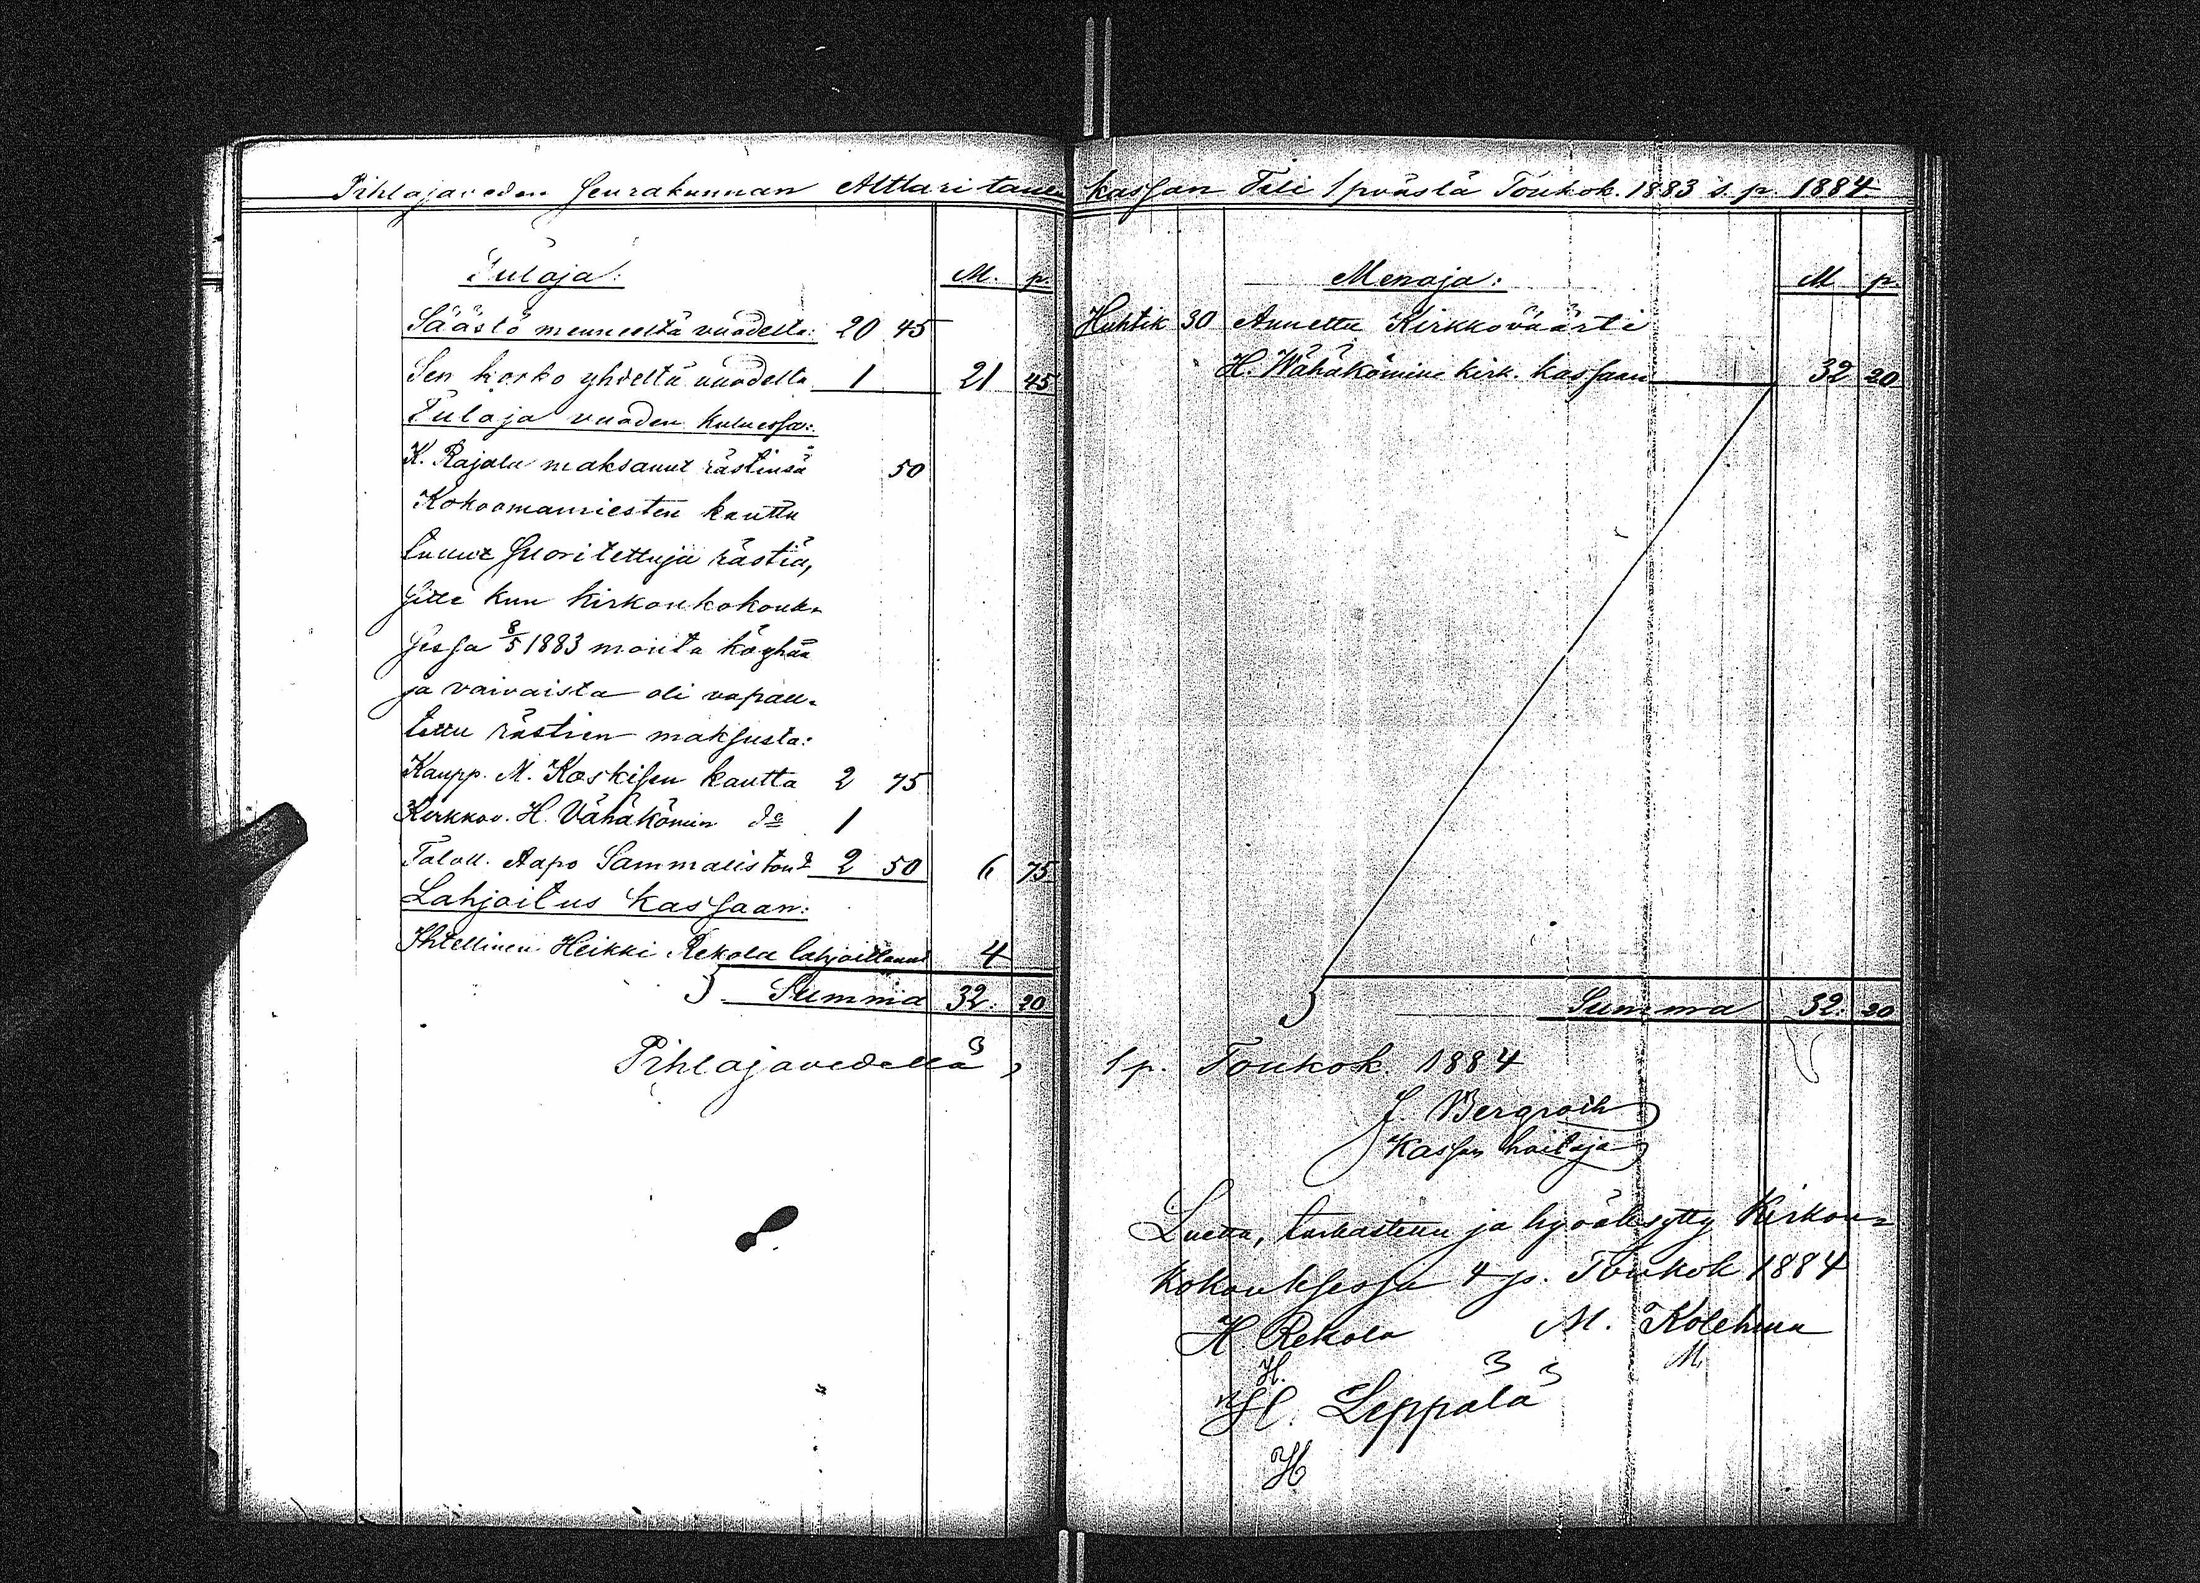 Pihlajaveden Seurakunnan Alttaritaue kassan Tili 1 p:västä Toukok. 1883 s. p. 1884
Tuloja: M. p.
Säästö menneeltä vuodelta: 20 45
Sen korko yhdeltä vuodelta 1 21 45
Tuloja vuoden kuluessa:
K. Rajala maksanut rästinsä 50
Kokoomamiesten kautta
tullut suoritettuja rästiä,
sitte kun kirkonkokouk-
sessa 8/5 1883 monta köyhää
ja vaivaista oli vapau-
tettu rästien maksusta:
Kaupp. M. Koskisen kautta 2 75
Kirkkov. H. Vähäkömin do 1
Taloll. Aapo Sammaliston do 2 50 6 75
Lahjoitus kassaan:
Ihtellinen Heikki Rekola lahjoittanut 4
Summa 32. 20
Pihlajavedellä,
Menoja: M p.
Huhtik 30 Annettu Kirkkoväärti
H. Wähäkömin kirk. kassaan 32 20
Summa 32. 20
1 p. Toukok. 1884
J. Bergroth
Kassan hoitaja
Luettu, tarkastettu ja hyväksytty Kirkon-
kokouksessa 4 p. Toukok 1884
H. Rekola M. Kolehma
H. M.
H. Leppälä
H